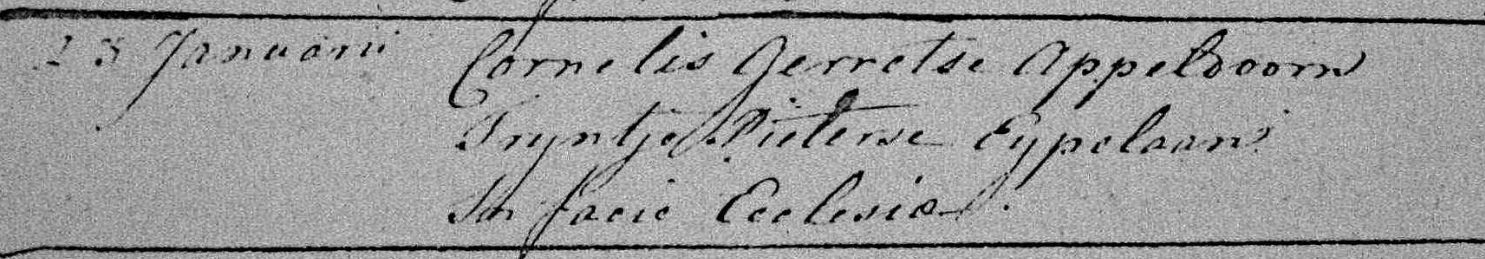 23 Januarii Cornelis Gerretse Appeldoorn
Tryntje Pieterse Eypelaan
In facie Ecclesiæ.